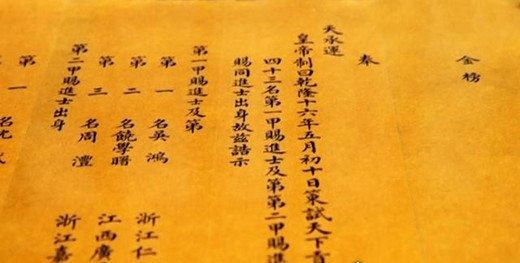 金榜
奉
天承運
皇帝制曰乾隆十六年五月初十日策試天下
四十三名第一甲賜進士及第第二甲賜進
賜同進士出身故茲誥示
第一甲賜進士及第
第一名吳鴻 浙江仁
第二名饒學曙 江西廣
第三名周灃 浙江嘉
第二甲賜進士出身
第一名沈